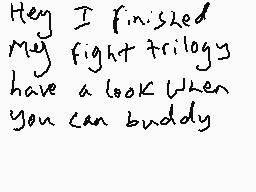 Hey I finished
My fight trilogy
have a look when
you can buddy